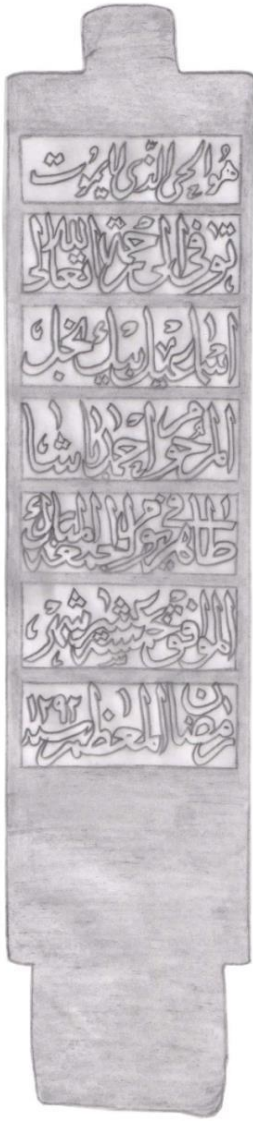 هُو الحي الذّي لا يموُت
توفى الى رحمة الله تعالى
اسماعيل بيك نجل
المرحوم احمد باشا
طاهر في يوم الجمعة المبارك
الموفق شهر
رمضان المعظم سنة ١٢٩٢